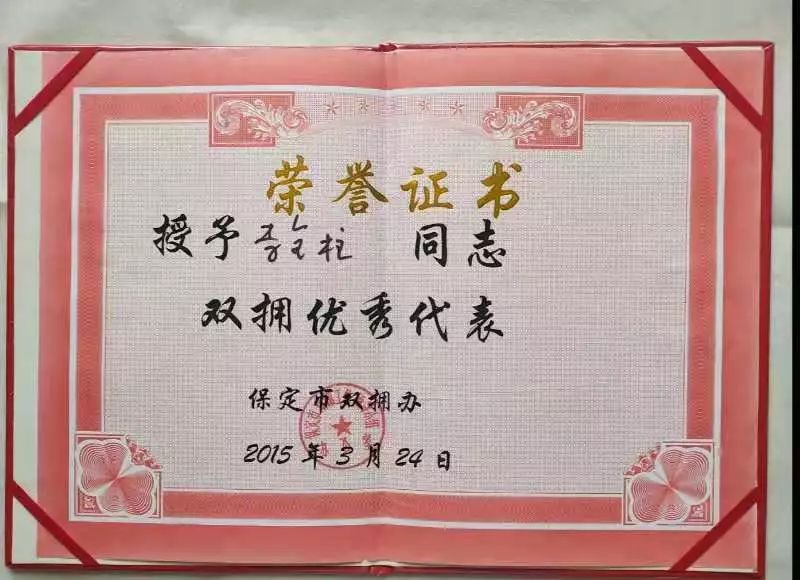 荣誉证书
授予 金柱 同志
双拥优秀代表
保定市双拥办
2015年3月24日